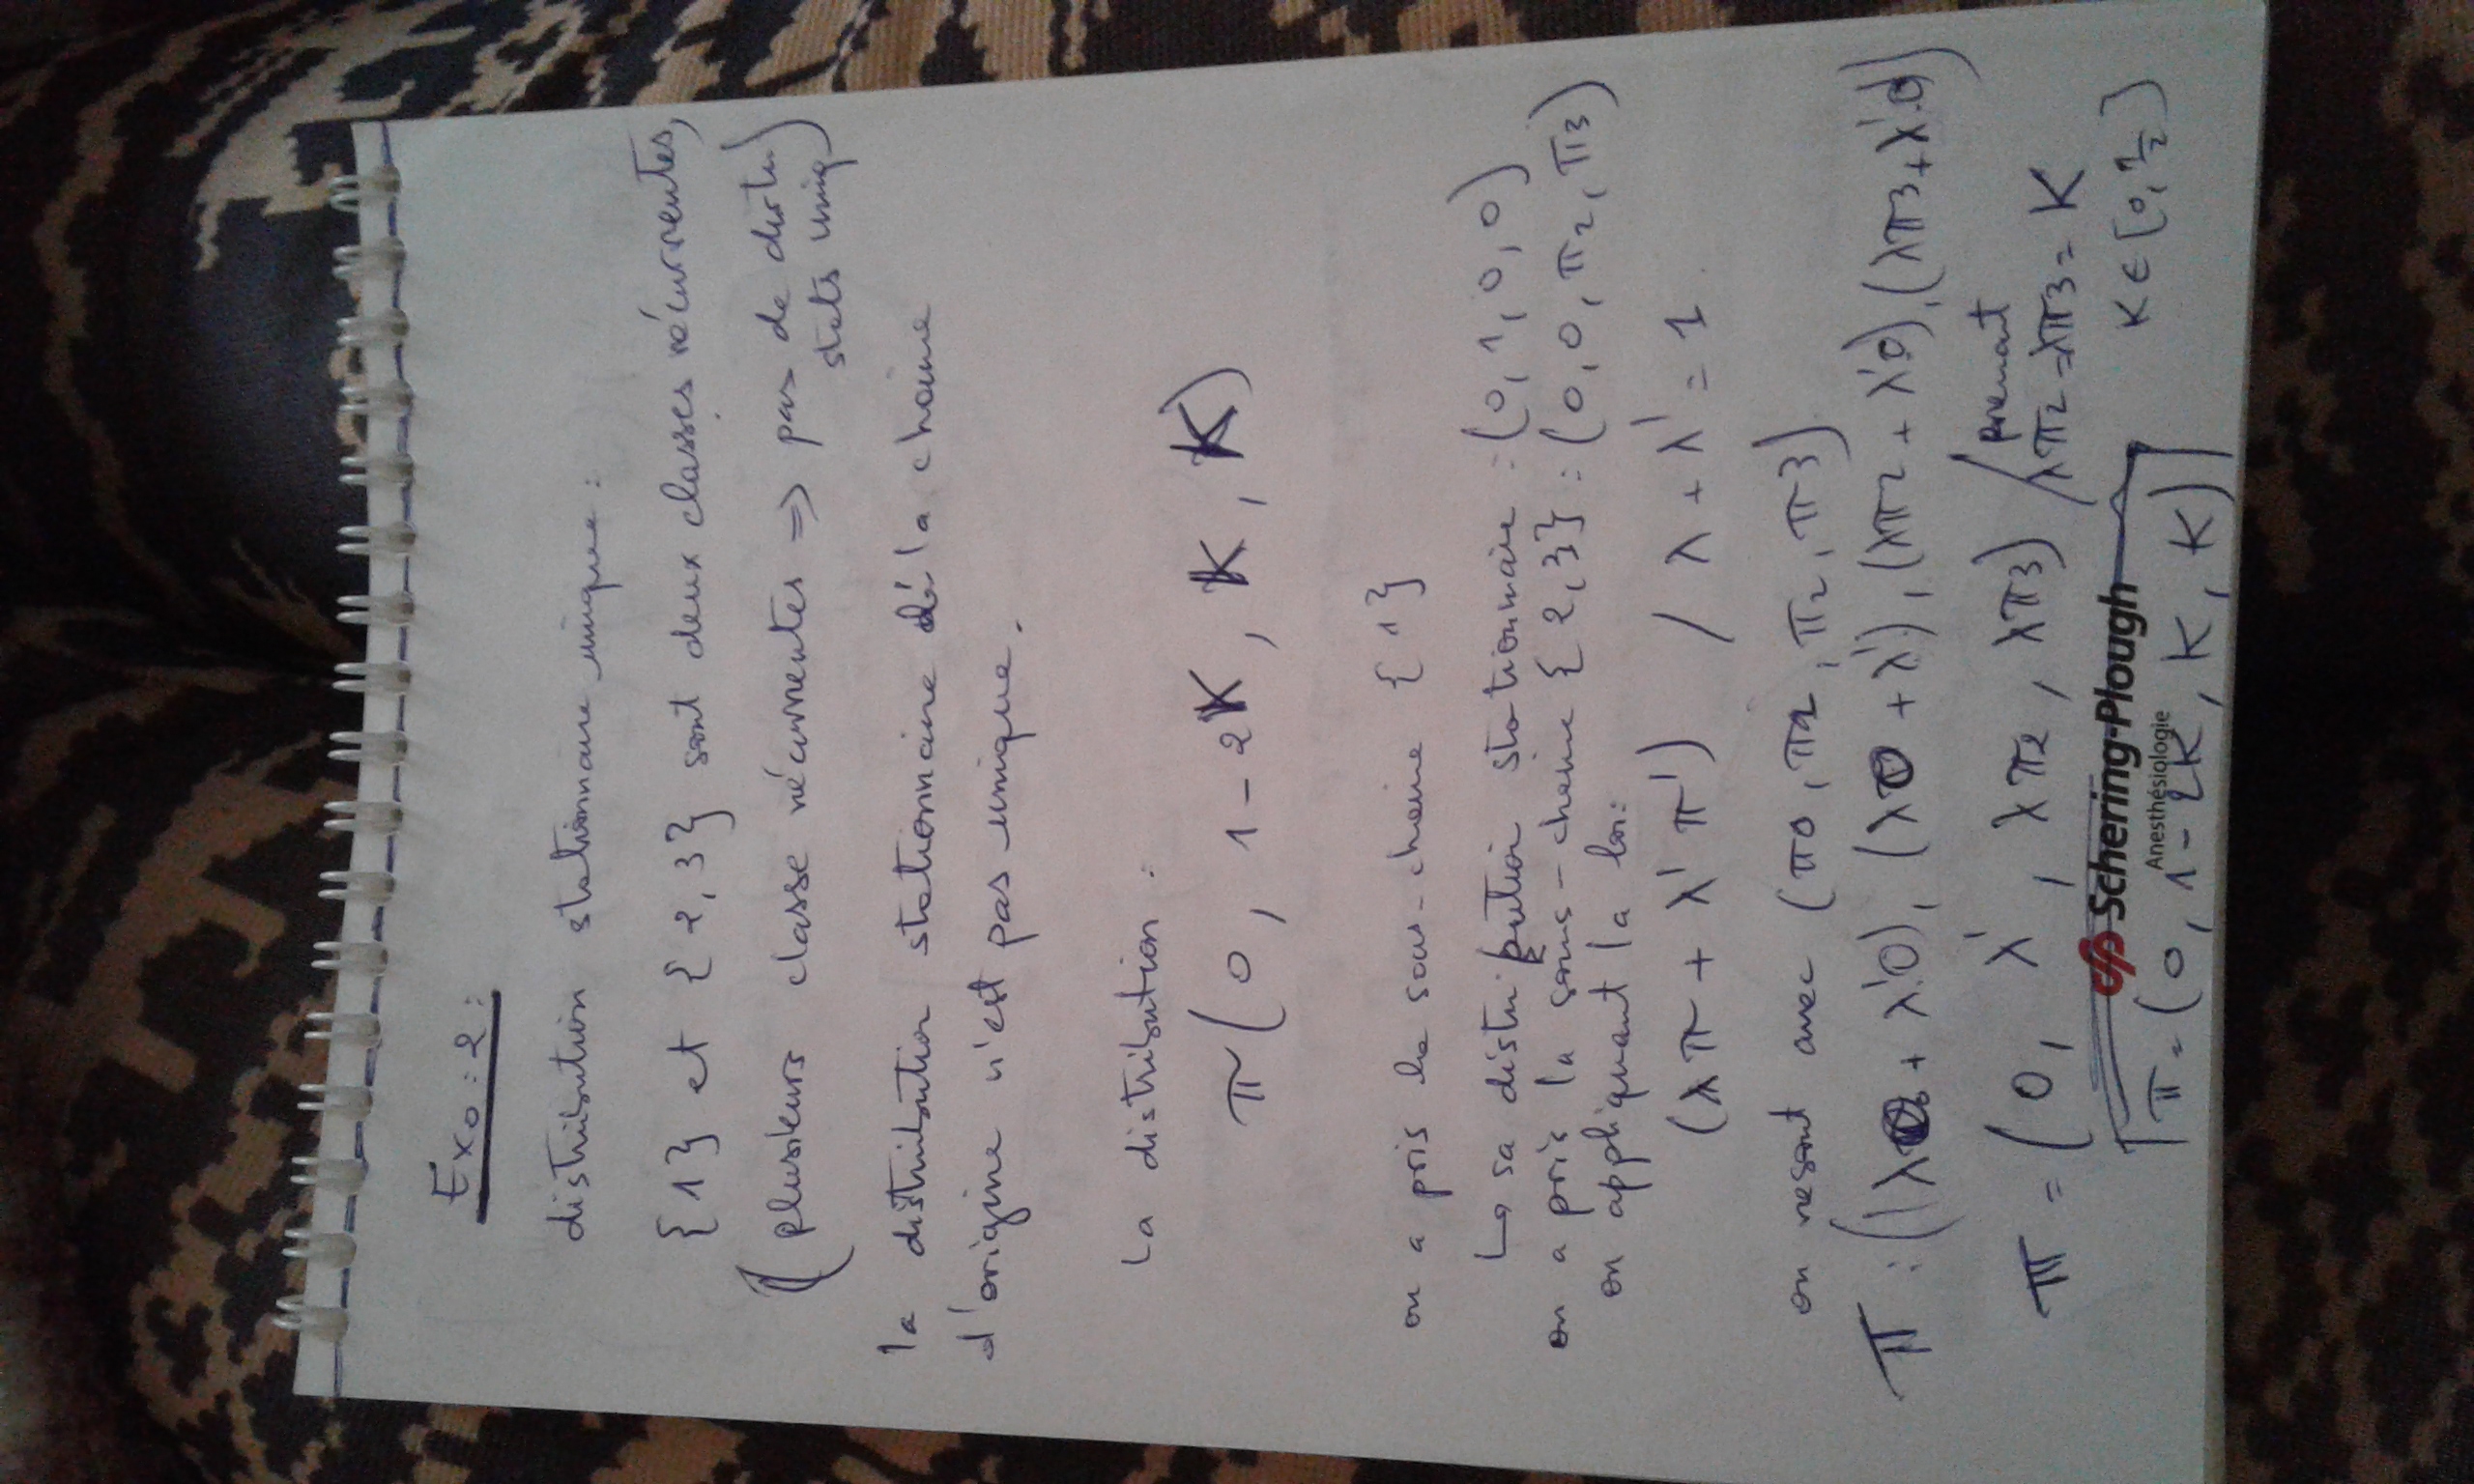 Exo : 2 :
distribution stationnaire unique :
{1} et {2,3} sont deux classes récurrentes,
(plusieurs classe récurrentes => pas de distu
stats uniq)
la distribution stationnaire de la chaine
d'origine n'est pas unique.
la distribution :
π(0, 1-2K, K, K)
on a pris la sous-chaine {1}
↳ sa distribution stationnaire : (0,1,0,0)
on a pris la sous-chaine {2,3} : (0,0,π2,π3)
en appliquant la loi:
(λπ + λ'π') / λ + λ' = 1
on resout avec (π0, π1, π2, π3)
π : ((λ0 + λ'0), (λ0 + λ'), (λπ2 + λ'0), (λπ3 + λ'.0))
π = (0, λ', λπ2, λπ3) / prenant
λπ2 = λπ3 = K
Schering-Plough
Anesthésiologie
K ∈ [0, 1/2]
π = (0, 1-2K, K, K)